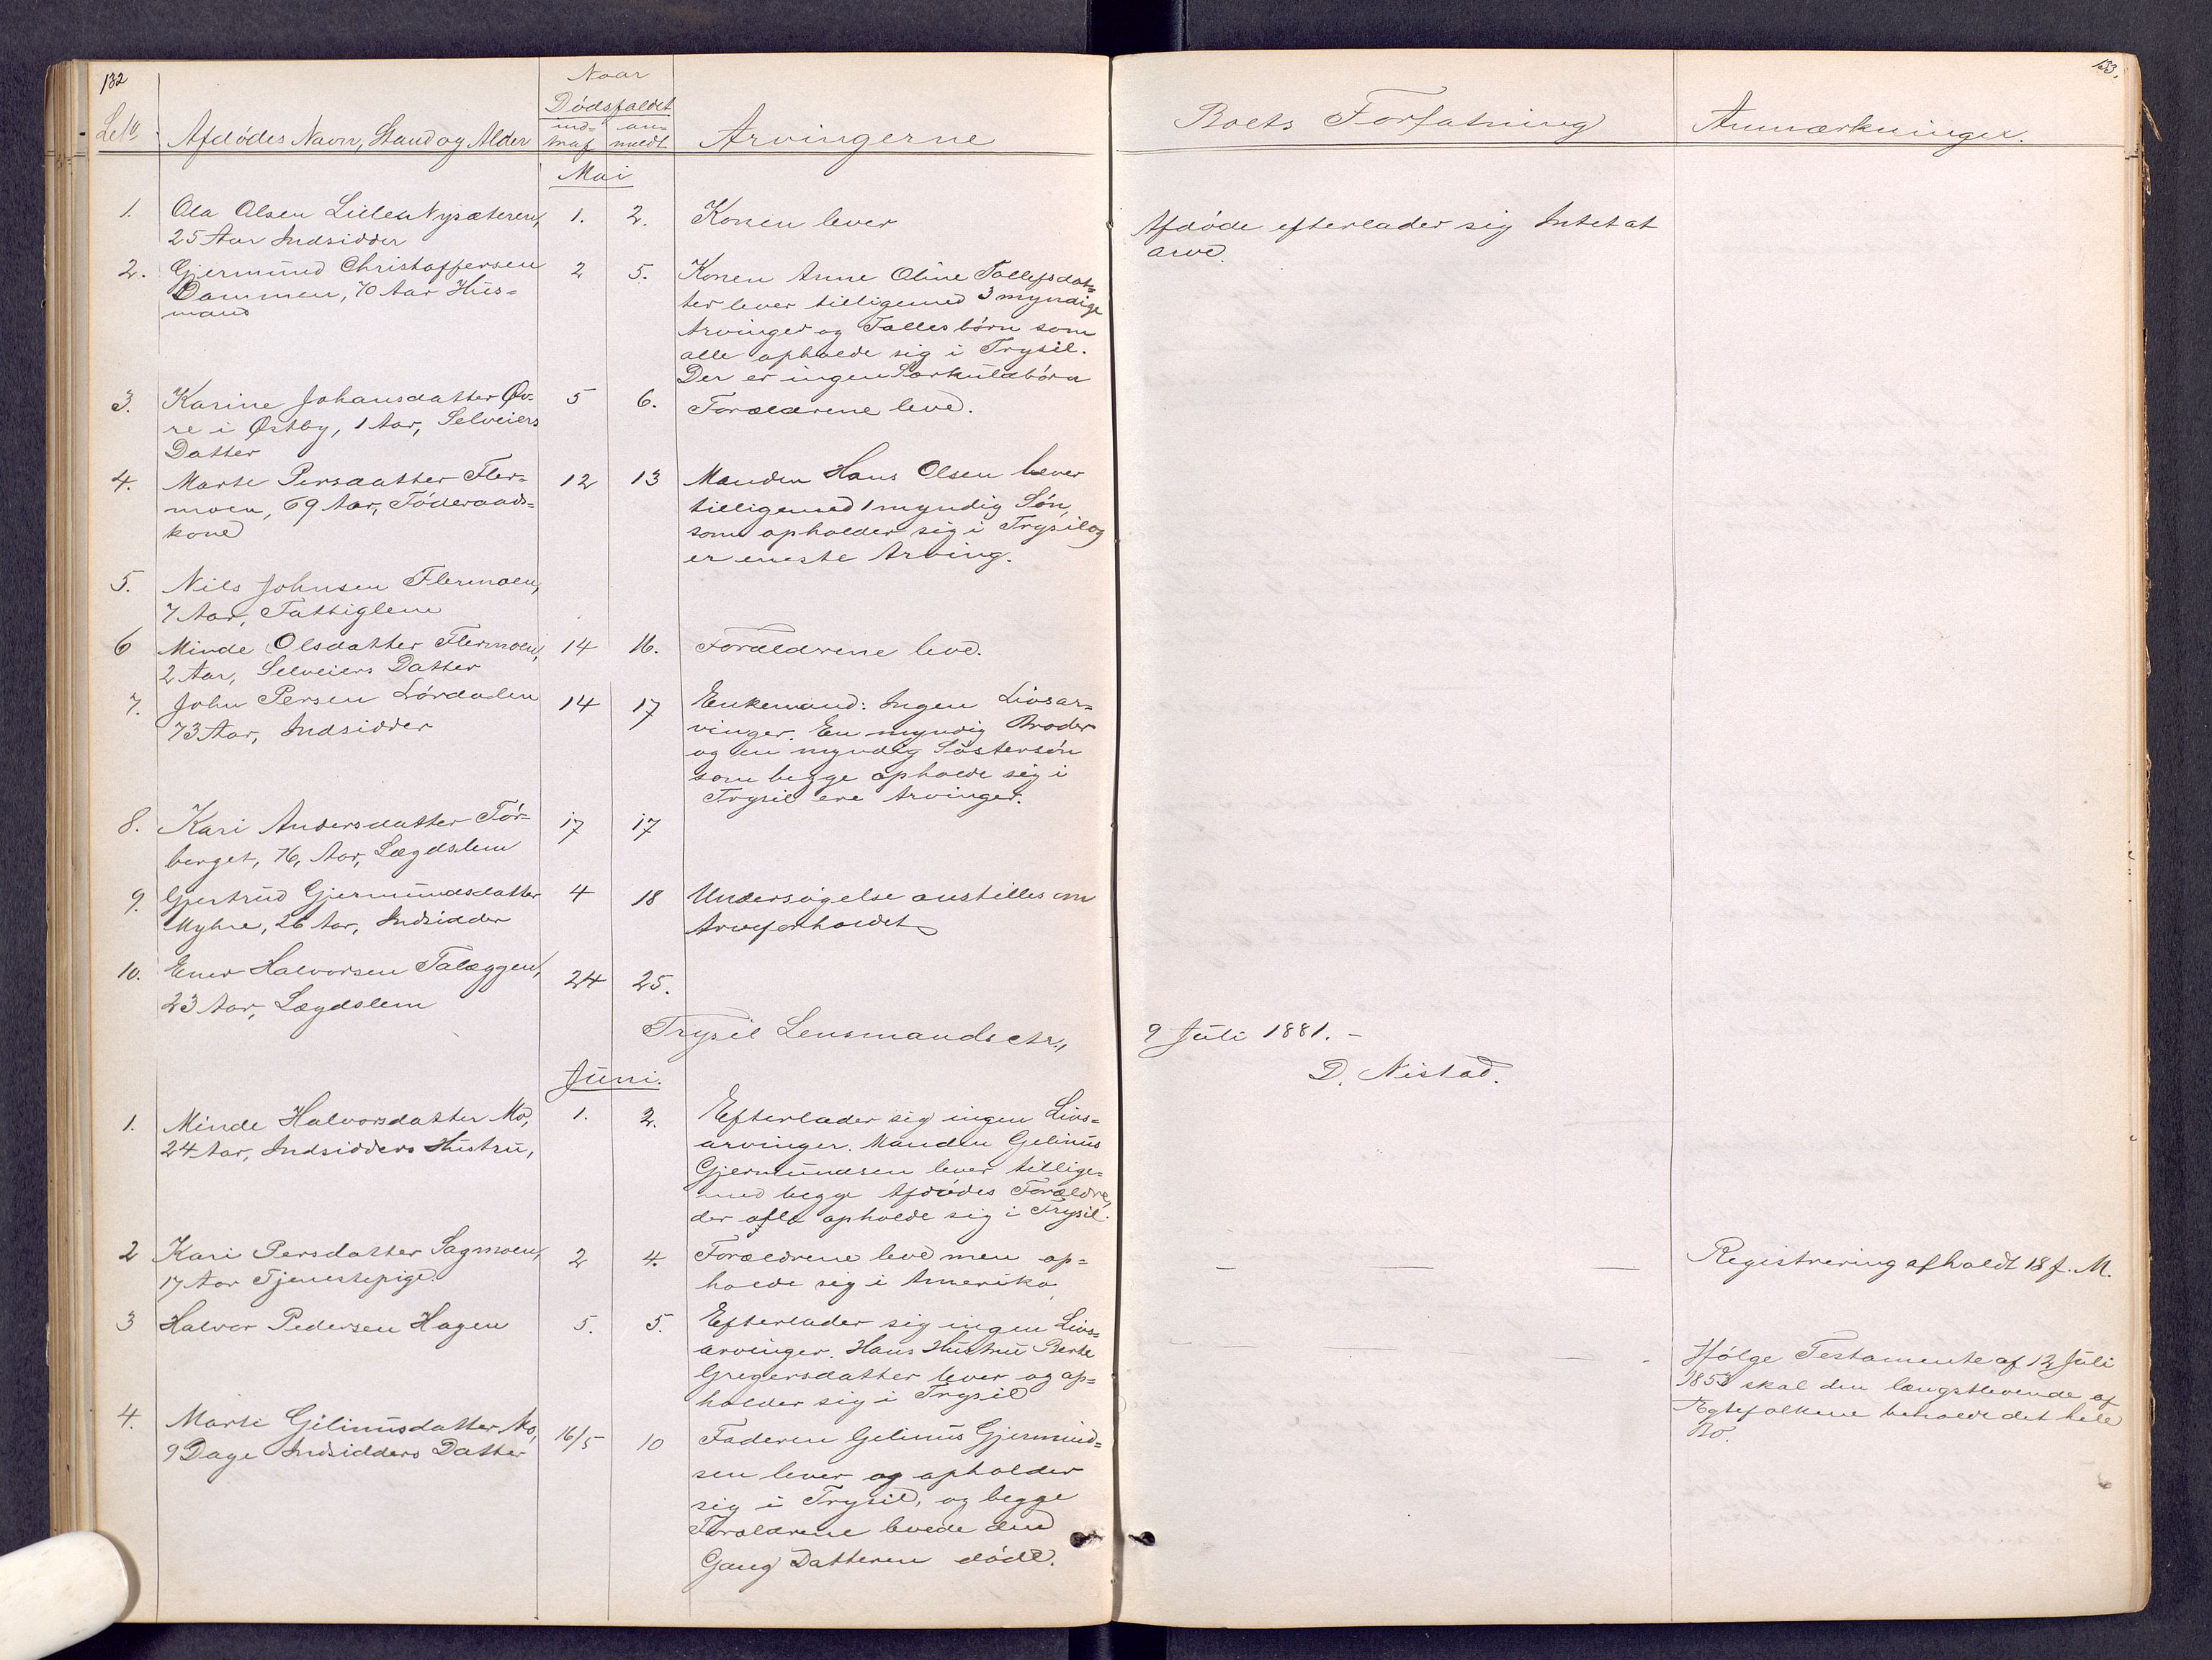 132
Naar
Dødsfaldet
LeNo Afdødes Navn, Stand og Alder ind= traf an= meldt Arvingerne
Mai
1. Ola Olsen Lillen Nysæteren, 1. 2. Konen lever
25 Aar Indsidder
2. Gjermund Christoffersen 2 5. Konen Anne Oline Tollefsdat=
Dammen, 70 Aar Hus= ter lever tilligemed 3 myndige
mand Arvinger og Fællesbørn som
alle opholde sig i Trysil.
Der er ingen Særkuldbörn
3. Karine Johansdatter Øv= 5 6. Forældrene leve.
re i Østby, 1 Aar, Selveiers
Datter
4. Marte Persdatter Fler= 12 13 Manden Hans Olsen lever
moen, 69 Aar, Föderaads= tilligemed 1 myndig Sön,
kone som opholder sig i Trysil og
er eneste Arving.
5. Nils Johnsen Flermoen,
7 Aar, Fattiglem
6 Minde Olsdatter Flermoen, 14 16. Forældrene leve.
2 Aar, Selveiers Datter
7. John Persen Lördalen 14 17 Enkemand: Ingen Livsar=
73 Aar, Indsidder vinger. En myndig Broder
og en myndig Söstersön
som begge opholde sig i
Trysil ere Arvinger.
8. Kari Andersdatter Tör= 17 17
berget, 76, Aar, Lægdslem
9. Gjertrud Gjermundsdatter 4 18 Undersøgelse anstilles om
Myhre, 26 Aar, Indsidder Arveforholdet
10. Ener Halvorsen Galæggen, 24 25.
23 Aar, Lægdslem
Trysil Lensmandsctr.,
Juni.
1. Minde Halvorsdatter Mo, 1. 2. Efterlader sig ingen Livs=
24 Aar, Indsidders Hustru, arvinger. Manden Gelinus
Gjermundsen lever tillige=
med begge Afdödes Forældre,
der alle opholde sig i Trysil.
2 Kari Persdatter Sagmoen, 2 4. Forældrene leve men op=
17 Aar Tjenestepige. holde sig i Amerika
3 Halvor Pedersen Hagen 5. 5. Efterlader sig ingen Livs=
arvinger. Hans Hustru Berte
Gregersdatter lever og op=
holder sig i Trysil
4. Marte Gelinusdatter Mo, 16/5 10 Faderen Gelinus Gjermund=
9 Dage Indsidders Datter sen lever og opholder
sig i Trysil, og begge
Forældrene levede den
Gang Datteren döde.
133.
Boets Forfatning Anmærkninger.
Afdøde efterlader sig Intet at
arve.
9 Juli 1881. -
D. Nistad.
- — — Registrering afholdt 18 f. M.
Ifölge Testamente af 12 Juli
1853 skal den længstlevende af
Ægtefolkene beholde det hele
Bo.